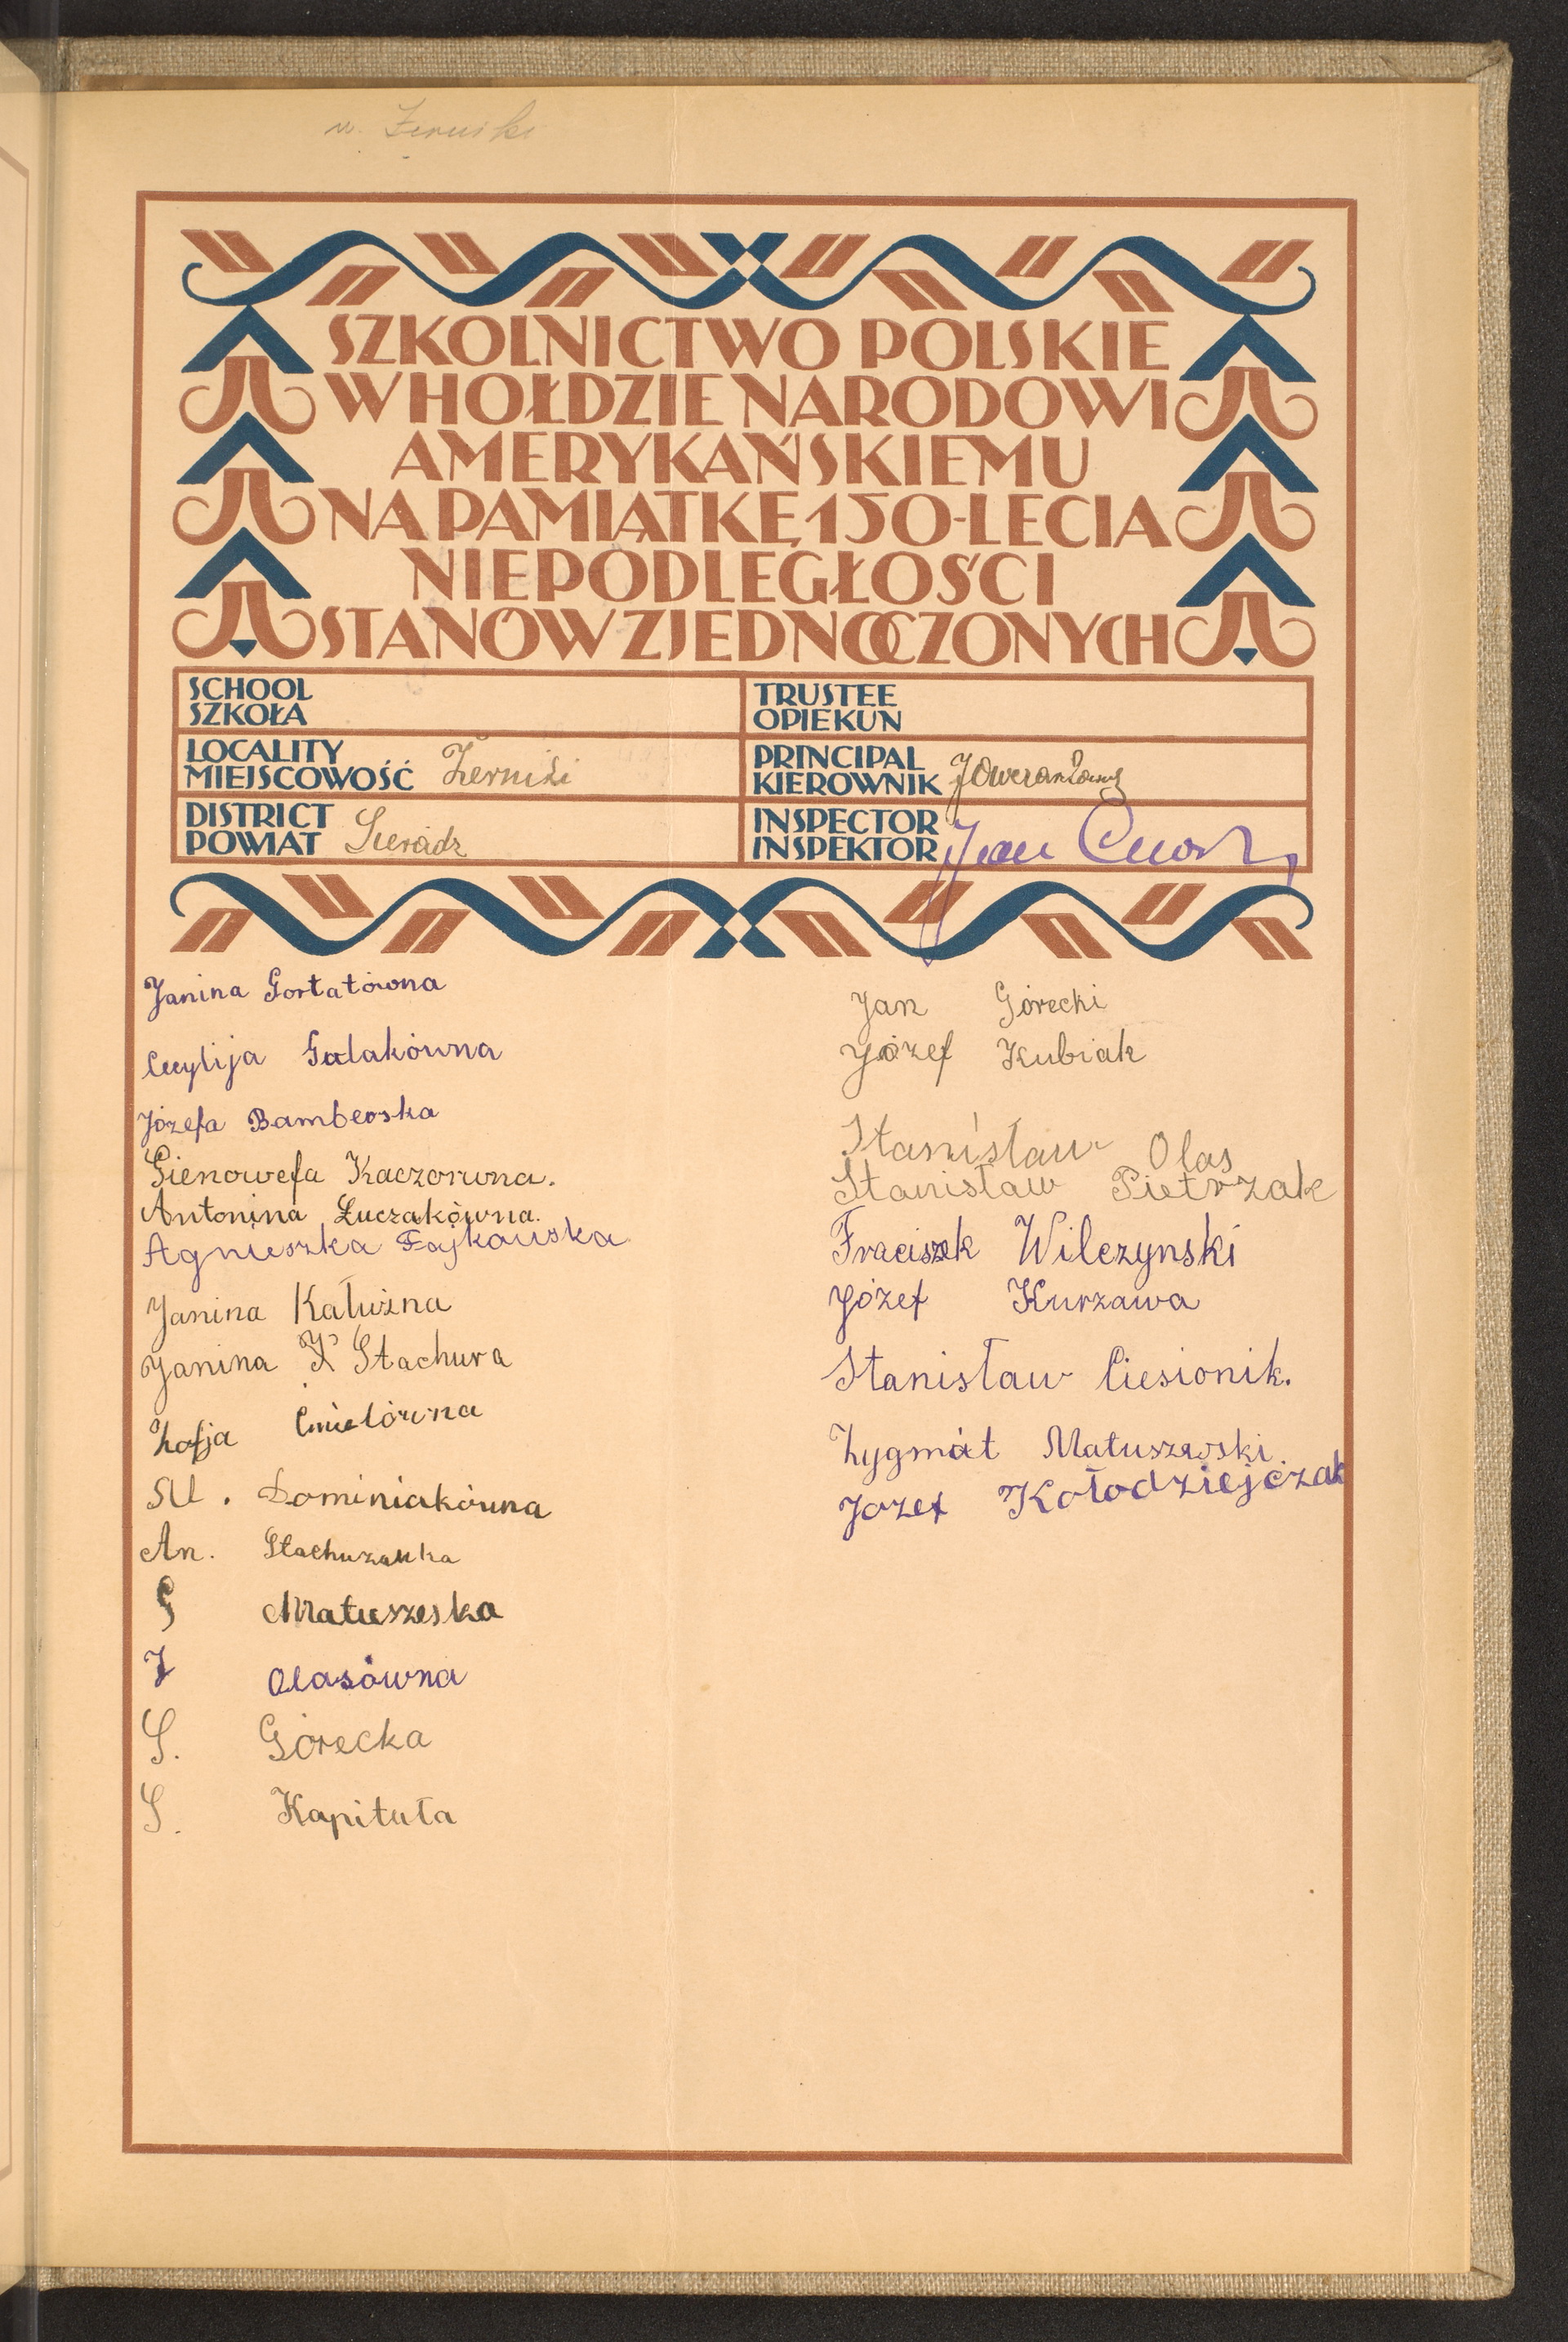 w. Żerniki
SZKOLNICTWO POLSKIE
W HOŁDZIE NARODOWI
AMERYKAŃSKIEMU
NA PAMIĄTKĘ 150-LECIA
NIEPODLEGŁOŚCI
STANÓW ZJEDNOCZONYCH
SCHOOL
SZKOŁA
TRUSTEE
OPIEKUN
LOCALITY
MIEJSCOWOŚĆ Żerniki
PRINCIPAL
KIEROWNIK
DISTRICT
POWIAT Sieradz
INSPECTOR
INSPEKTOR Jan
Janina Gortatówna
Cecylija Galakówna
Józefa Bamberska
Gienowefa Kaczorwna.
Antonina Łuczakówna.
Agnieszka Fajkowska
Janina Kałużna
Janina K Stachura
Zofja Cmielówna
M. Dominiakówna
An. Stachurzanka
G Matuszeska
J Olasówna
G. Górecka
S. Kapituła
Jan Górecki
Józef Kubiak
Stanisław Olas
Stanisław Pietrzak
Fraciszek Wilczynski
Józef Kurzawa
Stanisław Ciesionik.
Zygmót Matuszewski
Jozef Kołodziejczak